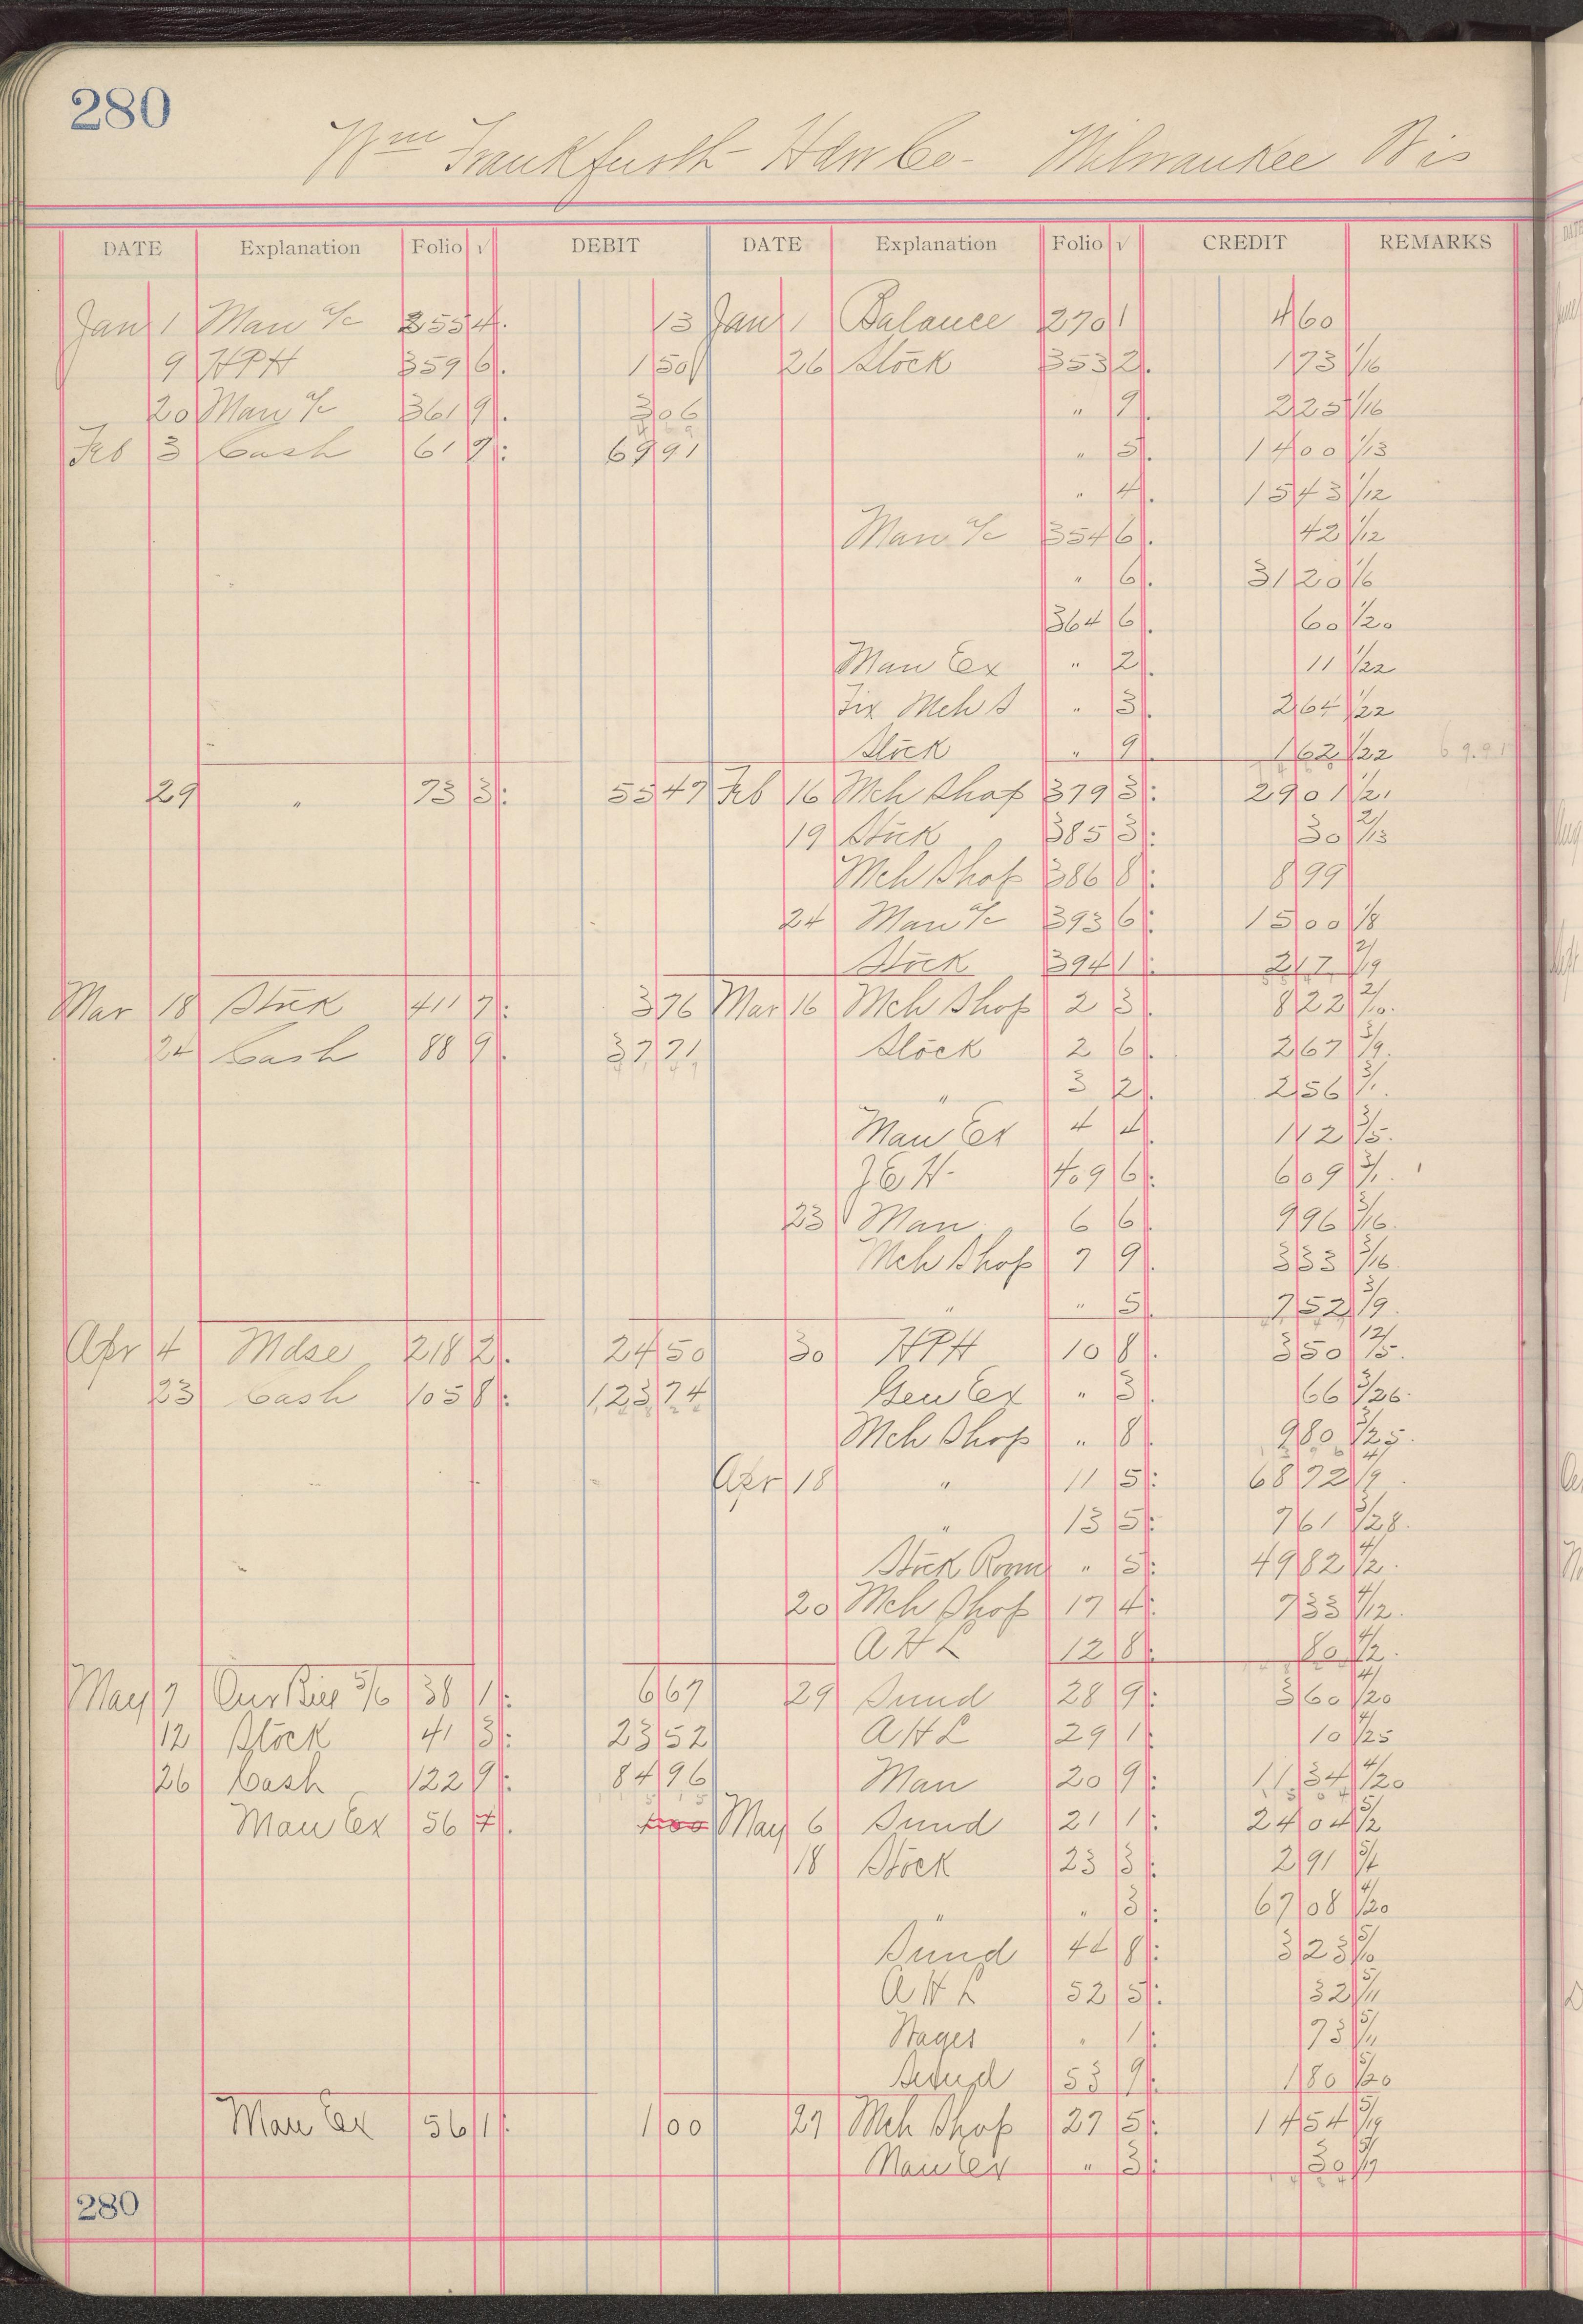 280
Wm Frankfurth Hdw Co - Milwaukee Wis
DATE Explanation Folio √ DEBIT DATE Explanation Folio √ CREDIT REMARKS
Jan 1 Man a/c 355 4 13 Jan 1 Balance 270 1 4 60
9 HPH 359 6 1 50 26 Stock 353 2 1 73 1/16
20 Man a/c 361 9 3 06 " 9 2 25 1/16
Feb 3 Cash 61 7 69 91 " 5 14 00 1/13
" 4 15 43 1/12
Man a/c 354 6 42 1/12
" 6 31 20 1/6
364 6 60 1/20
Man Ex " 2 11 1/22
Fix Mch S " 3 2 64 1/22
Stock " 9 1 62 1/22 69.91
29 " 73 3 55 47 Feb 16 Mch Shop 379 3 29 01 1/21
19 Stock 385 3 30 2/13
Mch Shop 386 8 8 99
24 Man a/c 393 6 15 00 1/8
Stock 394 1 2 17 2/9
Mar 18 Stock 411 7 3 76 Mar 16 Mch Shop 2 3 8 22 2/10
24 Cash 88 9 37 71 Stock 2 6 2 67 3/9
" 3 2 2 56 3/1
Man Ex 4 4 1 12 3/5
J E H 409 6 6 09 3/1
23 Man 6 6 9 96 3/16
Mch Shop 7 9 3 33 3/16
" " 5 7 52 3/9
Apr 4 Mdse 218 2 24 50 30 HPH 10 8 3 50 12/15
23 Cash 105 8 123 74 Gen Ex " 3 66 3/26
Mch Shop " 8 9 80 3/25
Apr 18 " 11 5 68 72 4/9
" 13 5 7 61 3/28
Stock Room " 5 49 82 4/2
20 Mch Shop 17 4 7 33 4/12
A H L 12 8 80 4/2
May 7 Our Bill 5/6 38 1 6 67 29 Sund 28 9 3 60 4/20
12 Stock 41 3 23 52 A H L 29 1 10 4/25
26 Cash 122 9 84 96 Man 20 9 11 34 4/20
Man Ex 56 7 1 00 May 6 Sund 21 1 24 04 5/2
18 Stock 23 3 2 91 5/4
" " 3 67 08 4/20
Sund 44 8 3 23 5/10
A H L 52 5 32 5/11
Wages " 1 73 5/11
Sund 53 9 1 80 5/20
Man Ex 56 1 1 00 27 Mch Shop 27 5 14 54 5/19
Man Ex " 3 30 5/17
280